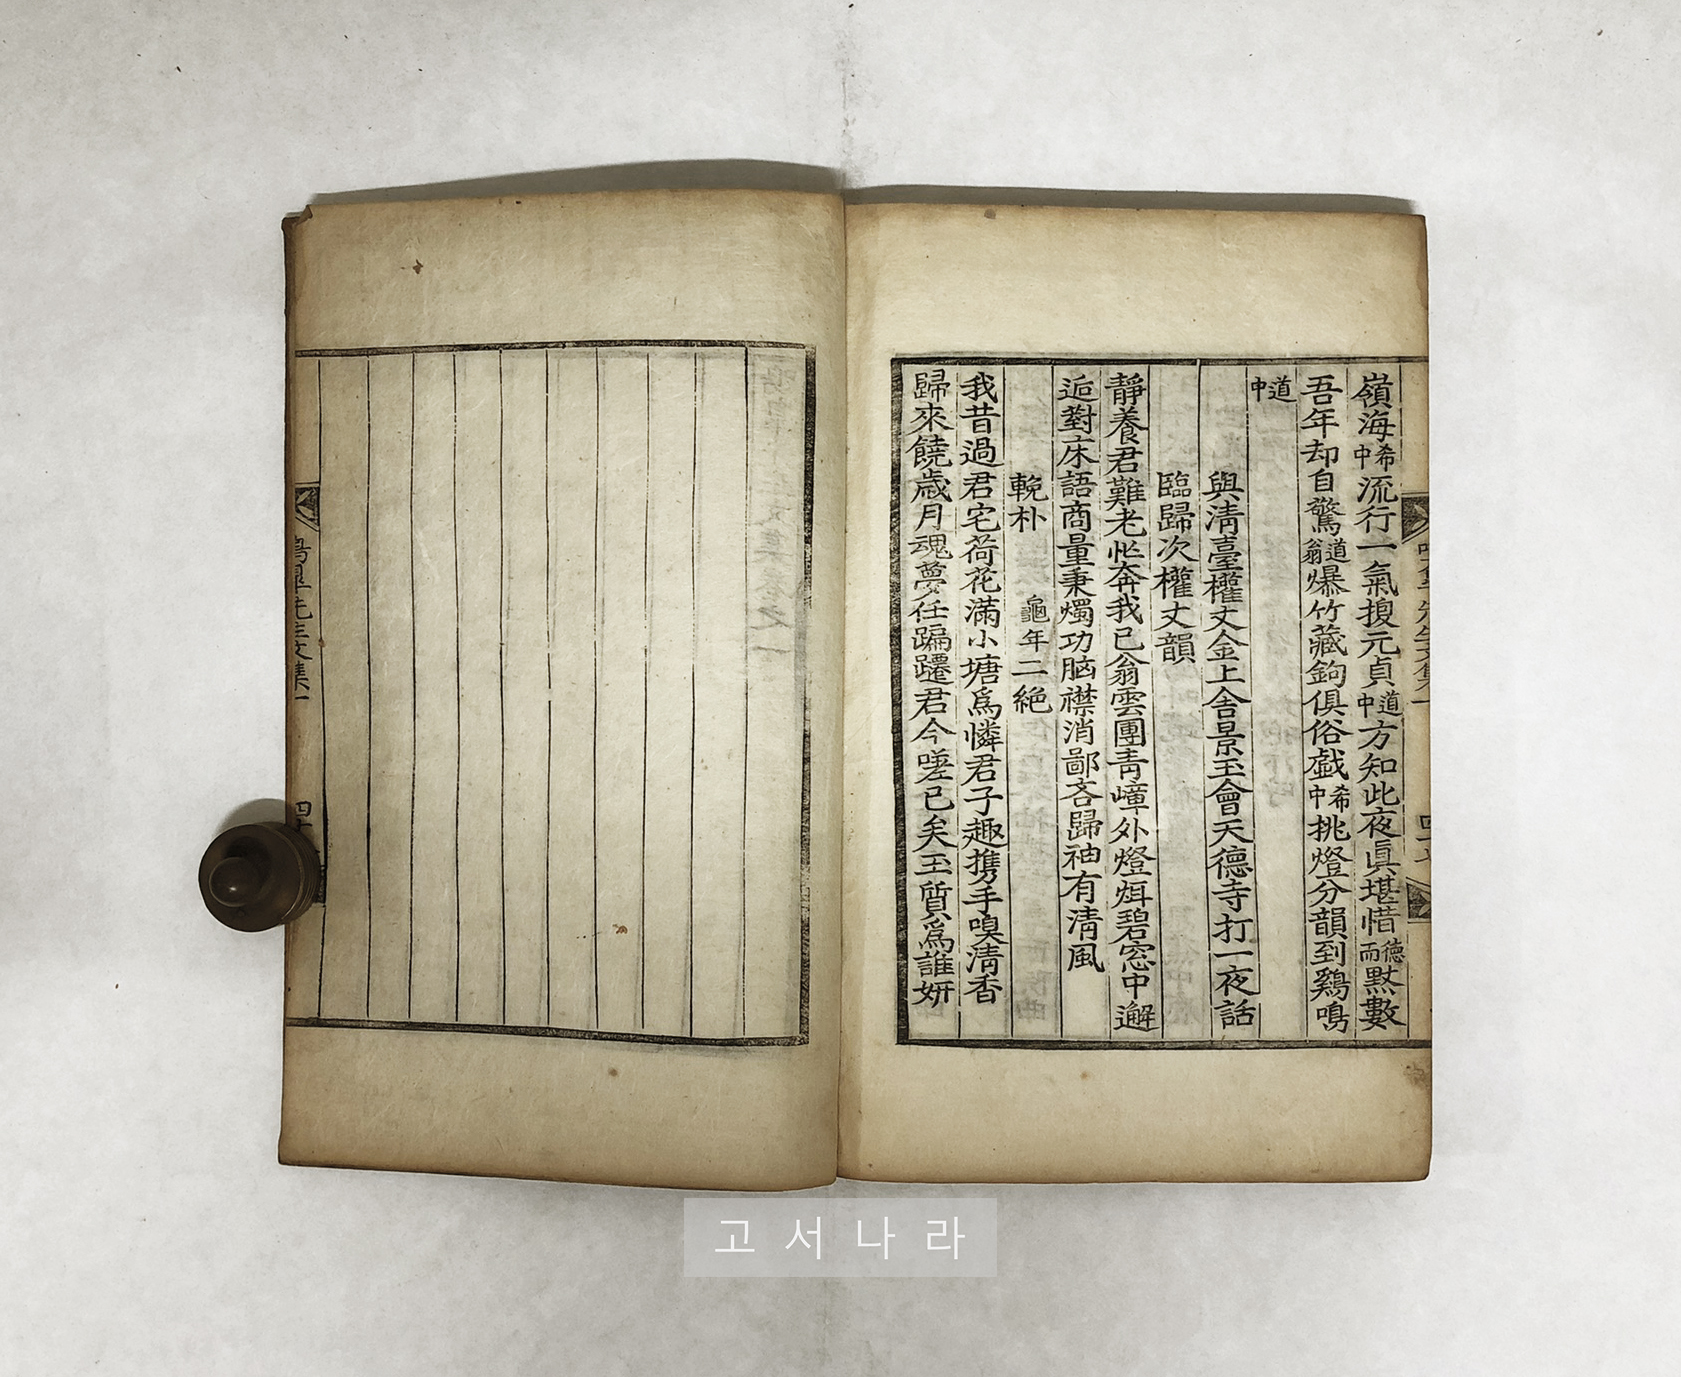 嶺海希中流行一氣擾元貞道中方知此夜眞堪惜德而黙數
吾年却自驚道翁爆竹藏鉤俱俗戱希中挑燈分韻到鷄鳴
道中
與淸臺權丈金上舍景玉會天德寺打一夜話
臨歸次權丈韻
靜養君難老怅奔我已翁雲團靑嶂外燈烜碧窓中邂
逅對床語商量秉燭功脑襟消鄙吝歸袖有淸風
輓朴龜年二絶
我昔過君宅荷花滿小塘爲憐君子趣携手嗅淸香
歸來饒歲月魂夢任蹁躚君今嗟已矣玉質爲誰姸
先生文集一
고서나라